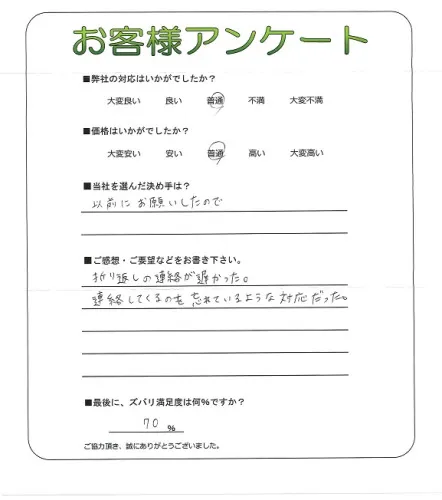 お客様アンケート
■弊社の対応はいかがでしたか？
大変良い 良い 普通 不満 大変不満
■価格はいかがでしたか？
大変安い 安い 普通 高い 大変高い
■当社を選んだ決め手は？
以前にお願いしたので
■ご感想・ご要望などをお書き下さい。
折り返しの連絡が遅かった。
連絡してくるのを忘れているような対応だった。
■最後に、ズバリ満足度は何％ですか？
70 %
ご協力頂き、誠にありがとうございました。